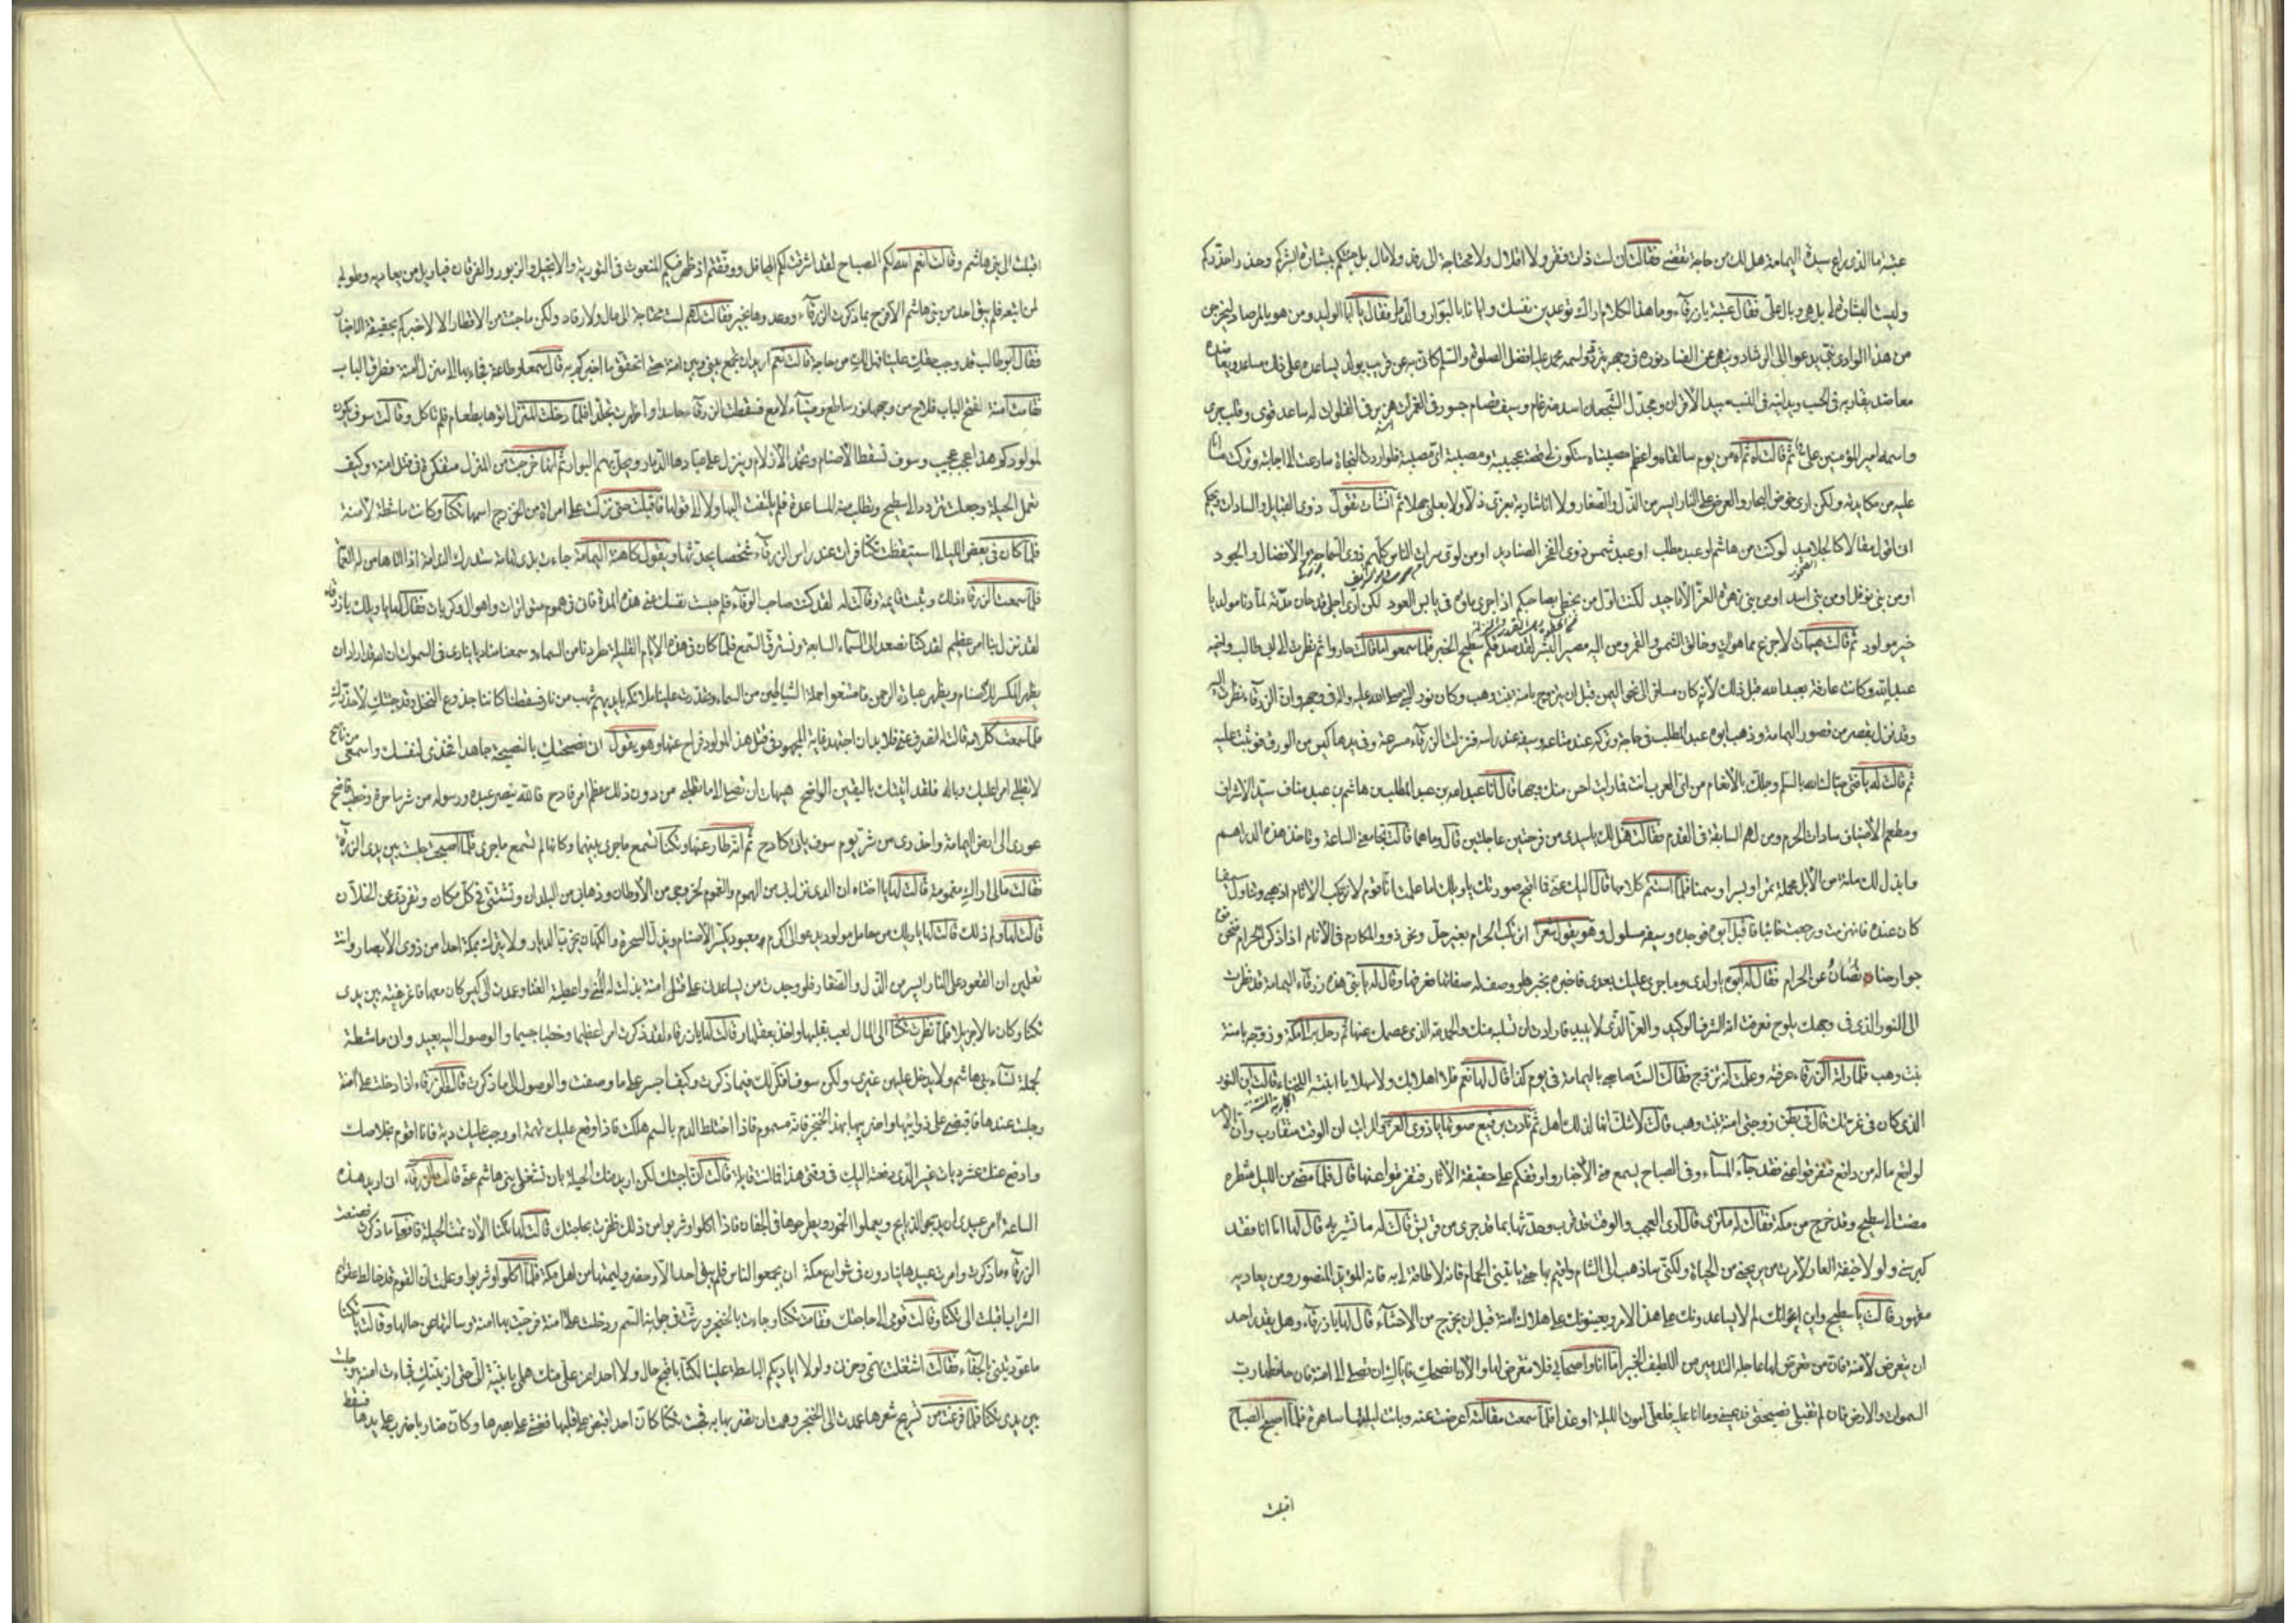 عتبة ما الذى راع سيدة اليمامة هل لك من حاجة تقضى فقالت انى لست ذات فقر ولا اقلال ولا محتاجة الى رفد ولا مال بل جئتكم ببشارة ابشركم وحذر احذركم
وليست البشارة لى بل هى وبال على فقال عتبة يا زرقاء وما هذا الكلام اراك توعدين نفسك وايانا بالبوار والدمار فقالت يا ابا الوليد ومن هو بالمرصاد ليخرجن
من هذا الوادى نبى يدعوا الى الرشاد وينهى عن الفساد نوره فى وجهه يتردد واسمه محمد عليه افضل الصلوة والسلام كانى به عن قريب يولد يساعده على ذلك مساعد ويعاضده
معاضد يقاربه فى الحسب ويدانيه فى النسب مبيد الأقران ومجدل الشجعان اسد ضرغام وسيف قصام جسور فى الغمرات هزبر فى الفلوات له ساعد قوى وقلب جرى
واسمه امير المؤمنين على ثم قالت اه ثم اه من يوم سالقاه واعظم مصيبتاه ستكون لى قصة عجيبة ومصيبة اى مصيبة فلو اردت النجاة سارعت الى اجابته وتركت ما انا
عليه من مكايدته ولكن ارى خوض البحار والعرض على النار ايسر من الذل والصغار ولا انا شارية بعزى ذلا ولا بعلمى جهلا ثم انشأت تقول ذوى القبايل والسادات ويحكم
ان اقول مقالا كالجلاميد لو كنت من هاشم او عبد مطلب او عبد شمس ذوى الفخر الصناديد او من لوى سراة الناس كلهم ذوى السماحة والافضال والجود
او من بنى نوفل او من بنى اسد او من بنى زهرة الغر الأناجيد لكنت اول من يحظى بصاحبكم اذا جرى ماؤه فى يابس العود لكن ارى اجلى قد حان مدته لما دنا مولد يا
خير مولود ثم قالت هيهات لا جزع مما هو آت وخالق الشمس والقمر ومن اليه مصير البشر لقد صدقكم سطيح الخبر فلما سمعوا ما قالت حاروا ثم نظرت الى ابى طالب واخيه
عبد الله وكانت عارفة بعبد الله قبل ذلك لأنه كان مسافرا الى نحو اليمن قبل ان يتزوج بامنة بنت وهب وكان نور النبى صلى الله عليه واله فى وجهه وان الزرقاء نظرت اليه
وقد نزل بقصر من قصور اليمامة وذهب ابوه عبد المطلب فى حاجة وتركه عند متاعه وسيفه عند راسه فنزلت الزرقاء مسرعة وفى يدها كيس من الورق فوقفت عليه
ثم قالت له يا فتى حياك الله بالسلام وجللك بالأنعام من اى العرب انت فما رايت احسن منك وجها قال انا عبد الله بن عبد المطلب بن هاشم بن عبد مناف سيد الاشراف
ومطعم الأضياف سادات الحرم ومن لهم السابقة فى القدم فقالت هل لك يا سيدى من فرحتين عاجلتين قال وما هما قالت تجامعنى الساعة وتاخذ هذه الدراهم
وابذل لك مائة من الأبل محملة تمرا وبسرا وسمنا فلما استتم كلامها قال اليك عنى فما اقبح صورتك يا ويلك اما علمت انا قوم لا نركب الاثام اذهبى وتناول سيفا
كان عنده فانهزمت ورجعت خائبة فاقبل ابوه فوجده وسيفه مسلول وهو يقول شعرا انركب الحرام بغير حل ونحن ذوو المكارم فى الأنام اذا ذكر الحرام فنحن قوم
جوارحنا تصان عن الحرام فقال له ابوه يا ولدى وما جرى عليك بعدى فاخبره بخبرها ووصف له صفاتها فعرفها وقال له يا بنى هذه زرقاء اليمامة قد نظرت
الى النور الذى فى وجهك يلوح فعرفت انه الشرف الوكيد والعز الذى لا يبيد فارادت ان تسلبه منك والحمد لله الذى عصمك عنها ثم رحل به الى مكة وزوجه بامنة
بنت وهب فلما راته الزرقاء عرفته وعلمت انه تزوج فقالت الست صاحبى باليمامة فى يوم كذا قال لها نعم فلا اهلا بك ولا سهلا يا ابنة اللخناء قالت اين النور
الذى كان فى غرتك قال فى بطن زوجتى امنة بنت وهب قالت لا شك انها لذلك اهل ثم نادت برفيع صوتها يا ذوى العز والمراتب ان الوقت متقارب وان الامر
لواقع ماله من دافع فتفرقوا عنى فقد جاء المساء وفى الصباح يسمع منى الأخبار واوقفكم على حقيقة الآثار فتفرقوا عنها قال فلما مضى من الليل شطره
مضت الى سطيح وقد خرج من مكة فقالت له ما ترى قال ارى العجب والوقت قد قرب وحدثها بما قد جرى من قريش قالت له ما تشير به قال لها اما انا فقد
كبر سنى ولولا خيفة العار لأمرت من يريحنى من الحياة ولكنى ساذهب الى الشام واقيم بها حتى ياتينى الحمام فانه لا طاقة لى به فانه المؤيد المنصور ومن يعاديه
مقهور قالت يا سطيح واين اعوانك لم لا يساعدونك على هذا الأمر ويعينونك على هلاك امنة قبل ان يخرج من الاحشاء قال لها يا زرقاء وهل يقدر احد
ان يتعرض لامنة فان من تعرض لها عاجله التدمير من اللطيف الخبير اما انا واصحابى فلا نتعرض لها والآن انصحك فاياك ان تصلى الى امنة فان حافظها رب
السموات والارض فان لم تقبلى نصيحتى فدعينى وما انا عليه فلعلى اموت الليلة او غدا فلما سمعت مقالته اعرضت عنه وباتت ليلتها ساهرة فلما اصبح الصباح
اقبلت
اقبلت الى بنى هاشم وقالت انعم الله لكم الصباح لقد اشرقت لكم المحافل ووفقتم اذ ظهر فيكم المنعوت فى التورية والانجيل والزبور والفرقان فيا ويل من يعاديه وطوبى
لمن اتبعه فلم يبق احد من بنى هاشم الا وفرح بما ذكرت الزرقاء ووعدوها بخير فقالت لهم لست محتاجة الى مال ولا رفاد ولكن ما جئت من الاقطار الا لاخبركم بحقيقة الاخبار
فقال ابو طالب قد وجب حقك علينا فهل لك من حاجة قالت نعم اريد ان تجمع بينى وبين امنة حتى اتحقق ما اخبركم به قال سمعا وطاعة فجاء بها الى منزل امنة فطرق الباب
فقامت امنة لتفتح الباب فلاح من وجهها نور ساطع وضياء لامع فسقطت الزرقاء حسدا واظهرت تجلدا فلما دخلت المنزل اتوها بطعام فلم تاكل وقالت سوف يكون
لمولودكم هذا عجب عجيب وسوف تسقط الأصنام وتخمد الأزلام وينزل على عبادها الدمار ويحل بهم البوار ثم انها خرجت من المنزل متفكرة فى قتل امنة وكيف
تعمل الحيلة وجعلت تتردد الى سطيح وتطلب منه المساعدة فلم يلتفت اليها ولا الى قولها فاقبلت حتى نزلت على امراة من الخزرج اسمها تكنا وكانت ماشطة لآمنة
فلما كان فى بعض الليالى استيقظت تكنا فرات عند راس الزرقاء شخصا يحدثها ويقول كاهنة اليمامة جاءت بذى تهامة ستدرك الندامة اذا اتاها من له العمامة
فلما سمعت الزرقاء ذلك وثبت قايمة وقالت له لقد كنت صاحب الوفاء فلم حبست نفسك عنى هذه المدة فانى فى هموم متواترات واهوال وكربات فقال لها يا ويلك يا زرقاء
لقد نزل بنا امر عظيم لقد كنا نصعد الى السماء السابعة ونسترق السمع فلما كان فى هذه الأيام القليلة طردنا من السماء وسمعنا مناديا ينادى فى السموات ان الله قد اراد ان
يظهر المكسر للاصنام ويظهر عبادة الرحمن فامتنعوا جملة الشياطين من السماء وتحدرت علينا ملائكة بايديهم شهب من نار فسقطنا كاننا جذوع النخل وقد جئتك لأحذرك
فلما سمعت كلامه قالت له انصرف عنى فلا بد ان اجتهد غاية المجهود فى قتل هذا المولود فراح عنها وهو يقول انى نصحتك بالنصيحة جاهدا فخذى لنفسك واسمعى من ناصح
لا تطلبى امرا عليك وباله فلقد اتيتك باليقين الواضح هيهات ان تصلى الى ما تطلبى من دون ذلك عظم امر فادح فالله ينصر عبده ورسوله من شر ساحرة وخطب فاضح
عودى الى ارض اليمامة واحذرى من شر يوم سوف ياتى كادح ثم انه طار عنها وتكنا تسمع ما جرى بينهما وكانها لم تسمع ما جرى فلما اصبحت جلست بين يدى الزرقاء
فقالت مالى اراك مغمومة قالت لها يا اختاه ان الذى نزل بى من الهموم والغموم لخروجى من الأوطان وذهابى من البلدان وتشتتى فى كل مكان وتفردى عن الخلان
قالت لها ولم ذلك قالت لها يا ويلك من حامل مولود يدعوا الى اكرم معبود يكسر الأصنام ويذل السحرة والكهان يخرب الديار ولا يترك بمكة احدا من ذوى الأبصار وانت
تعلمين ان القعود على النار ايسر من الذل والصغار فلو وجدت من يساعدنى على قتل امنة بذلت له المنى واعطيته الغنا وعمدت الى كيس كان معها فافرغته بين يدى
تكنا وكان مالا جزيلا فلما نظرت تكنا الى المال لعب بقلبها واخذ بعقلها وقالت لها يا زرقاء لقد ذكرت امرا عظيما وخطبا جسيما والوصول اليه بعيد وانى ماشطة
لجملة نساء بنى هاشم ولا يدخل عليهن غيرى ولكن سوف افكر لك فيما ذكرت وكيف اجسر على ما وصفت والوصول الى ما ذكرت قالت الزرقاء اذا دخلت على امنة
وجلست عندها فاقبضى على ذوايبها واضربيها بهذا الخنجر فانه مسموم فاذا اختلط الدم بالسم هلكت فاذا وقع عليك تهمة او وجب عليك دية فانا اقوم بخلاصك
وادفع عنك عشر ديات غير الذى دفعته اليك فى وقتى هذا فما انت قايلة قالت انى اجبتك لكن اريد منك الحيلة بان تشغلى بنى هاشم عنى قالت الزرقاء انى اريد هذه
الساعة امر عبيدى ان يذبحوا الذبايح ويعملوا الخمور ويطرحوها فى الجفان فاذا اكلوا وشربوا من ذلك ظفرت بحاجتك قالت لها تكنا الآن تمت الحيلة فافعلى ما ذكرت فصنعت
الزرقاء ما ذكرت وامرت عبيدها ينادون فى شوارع مكة ان يجمعوا الناس فلم يبق احد الا وحضر وليمتها من اهل مكة فلما اكلوا وشربوا وعلمت ان القوم قد خالط عقولهم
الشراب اقبلت الى تكنا وقالت قومى الى حاجتك فقامت تكنا وجاءت بالخنجر ورشت فى جوانبه السم ودخلت على امنة فرحبت بها امنة وسالتها عن حالها وقالت يا تكنا
ما عودتينى بالجفاء فقالت اشتغلت بهمى وحزنى ولولا اياديكم الباسطة علينا لكنا باقبح حال ولا احد اعز على منك هلمى يا بنية الى حتى ازينك فجاءت امنة وجلست
بين يدى تكنا فلما فرغت من تسريح شعرها عمدت الى الخنجر وهمت ان تضربها به فحست تكنا كان احدا قبض على قلبها فغشى على بصرها وكان ضاربا ضرب على يدها فسقط